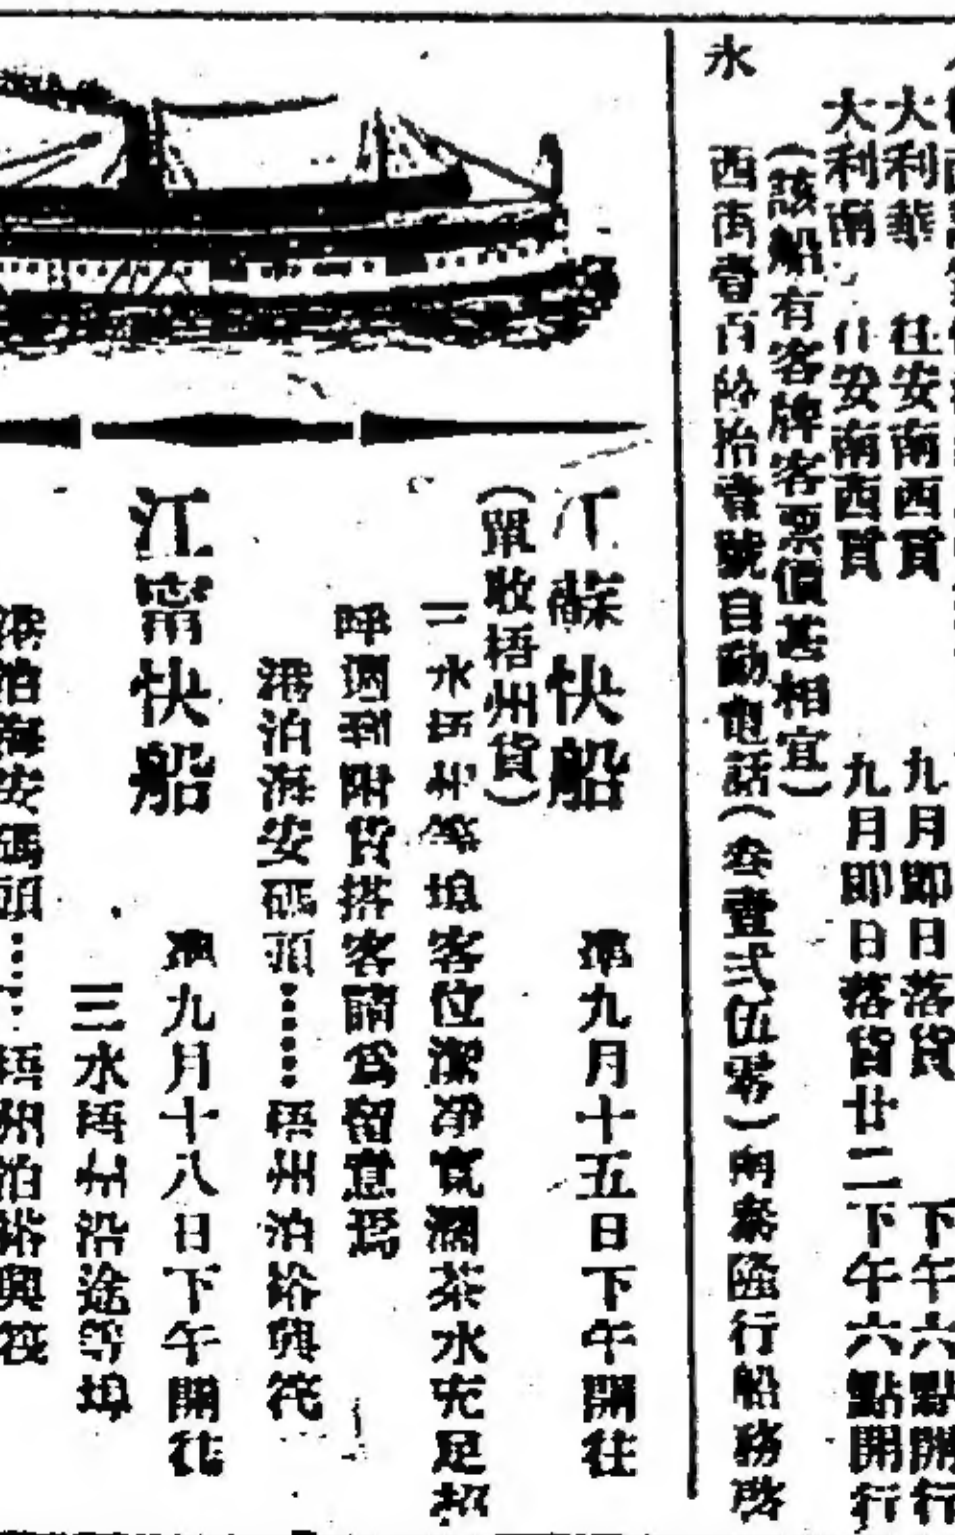 大利華 往安南西貢 九月即日落貨 下午六點開行
大利南 往安南西貢 九月即日落貨廿二下午六點開行
(該船有客牌客票價甚相宜)
永
西街壹百陸拾壹號自動電話(叁壹弍伍零)南泰隆行船務啓
江蘇快船 準九月十五日下午開往
(單收梧州貨)
三水梧州等埠客位潔净寬濶茶水充足招
呼週到附貨搭客請爲留意焉
港泊海安碼頭……梧州泊裕興筏
江甯快船 準九月十八日下午開往
三水梧州沿途等埠
港泊海安碼頭……梧州泊裕興筏